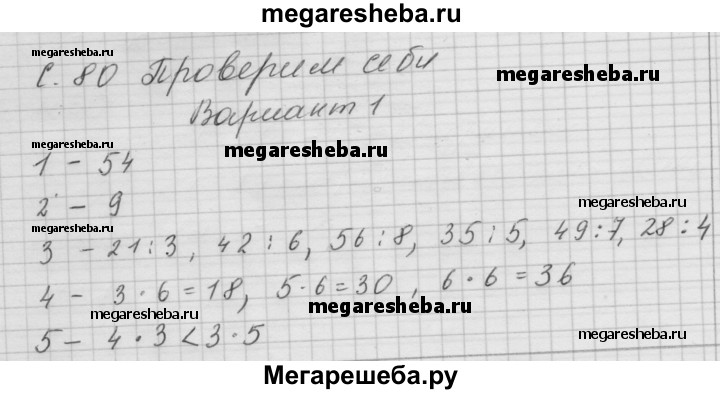 megaresheba.ru
megaresheba.ru
С. 80 Проверим себя
megaresheba.ru
Вариант 1
megaresheba.ru
megaresheba.ru
1 - 54
2 - 9
megaresheba.ru
megaresheba.ru
3 - 21:3, 42:6, 56:8, 35:5, 49:7, 28:4
4 - 3·6=18, 5·6=30, 6·6=36
megaresheba.ru
megaresheba.ru
5 - 4·3<3·5
megaresheba.ru
Мегарешеба.ру